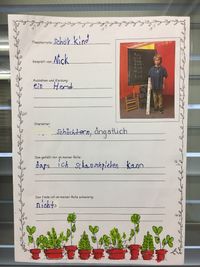 Theatername: Schüt Kind
Gespielt von: Nick
Aussehen und Kleidung:
ein Hemd
Charakter:
schüchtern, ängstlich
Das gefällt mir an meiner Rolle:
daps ich schauspielen kann
Das finde ich an meiner Rolle schwierig:
nichts